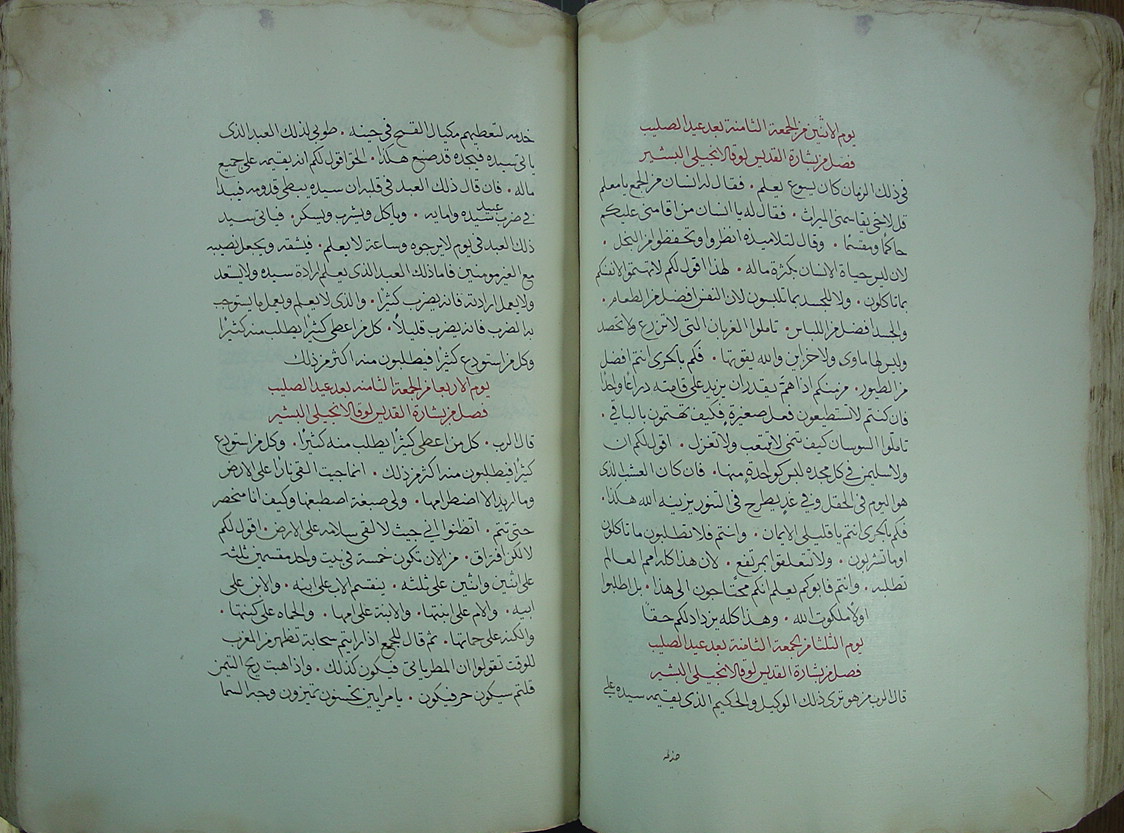 يوم الاثنين من الجمعة الثامنة بعد عيد الصليب
فصل من بشارة القديس لوقا الانجيلي البشير
في ذلك الزمان كان يسوع يعلم ٠ فقال له انسان من الجمع يا معلم
قل لاخي يقاسمني الميراث ٠ فقال له يا انسان من اقامني عليكم
حاكمًا ومقسمًا ٠ وقال لتلاميذه انظروا وتحفظوا من البخل ٠
لان ليس حياة الانسان بكثرة ماله ٠ لهذا اقول لكم لا تهتموا لانفسكم
بما تاكلون ٠ ولا للجسد بما تلبسون لان النفس افضل من الطعام ٠
والجسد افضل من اللباس ٠ تاملوا الغربان التي لا تزرع ولا تحصد
وليس لها ماوى ولا خزاين والله يقوتها ٠ فكم بالحرى انتم افضل
من الطيور ٠ من منكم اذا هم يقدر ان يزيد على قامته دراعًا واحدًا
فان كنتم لا تستطيعون فعل صغيرة فكيف تهتمون بالباقي ٠
تاملوا السوسان كيف تنمى لا تتعب ولا تغزل ٠ اقول لكم ان
ولا سليمن في كل مجده لبس كواحدة منها ٠ فان كان العشب الذي
هو اليوم في الحقل وفي غد يطرح في التنور يزينه الله هكذا ٠
فكم بالحرى انتم يا قليلي الايمان ٠ وانتم فلا تطلبون ما تاكلون
او ما تشربون ٠ ولا تتعلقوا بمرتفع ٠ لان هذا كله امم العالم
تطلبه ٠ وانتم فابوكم يعلم انكم محتاجون الى هذا ٠ بل اطلبوا
اولًا ملكوت الله ٠ وهذا كله يزداد لكم حقا
يوم الثلثا من الجمعة الثامنة بعد عيد الصليب
فصل من بشارة القديس لوقا الانجيلي البشير
قال الرب من هو ترى ذلك الوكيل والحكيم الذي يقيمه سيده على
خدمه
خدمه لتعطيهم مكيال القمح في حينه ٠ طوبى لذلك العبد الذي
ياتى سيده فيجده قد صنع هكذا ٠ الحق اقول لكم انه يقيمه على جميع
ماله ٠ فان قال ذلك العبد في قلبه ان سيده يبطي قدومه فيبدا
في ضرب عبيد سيده وامايه ٠ وياكل ويشرب ويسكر ٠ فياتى سيد
ذلك العبد في يوم لا يرجوه وساعة لا يعلم ٠ فيشقه ويجعل نصيبه
مع الغير مومنين فاما ذلك العبد الذي يعلم ارادة سيده ولا يستعد
ولا يعمل ارادته فانه يضرب كثيرًا ٠ والذي لا يعلم ويعمل ما يستوجب
به الضرب فانه يضرب قليلًا ٠ كل من اعطى كثيرًا يطلب منه كثيرًا
وكل من استودع كثيرًا فيطلبون منه اكثر من ذلك
يوم الاربعا من الجمعة الثامنه بعد عيد الصليب
فصل من بشارة القديس لوقا الانجيلي البشير
قال الرب ٠ كل من اعطى كثيرًا يطلب منه كثيرًا ٠ وكل من استودع
كثيرًا فيطلبون منه اكثر من ذلك ٠ انما جيت القي نارًا على الارض
وما اريد الا اضطرامها ٠ ولى صبغة اصطبغها وكيف انا منحصر
حتى تتم ٠ اتظنوا اني جيت لالقى سلامه على الارض ٠ اقول لكم
لا لكن افتراق ٠ من الان تكون خمسة في بيت واحد مقسمين ثلثه
على اثنين واثنين على ثلثه ٠ ينقسم الاب على ابنه ٠ والابن على
ابيه ٠ والام على ابنتها ٠ والابنة على امها ٠ والحماه على كنتها ٠
والكنه على حماتها ٠ ثم قال للجمع اذا رايتم سحابة تظهر من المغرب
للوقت تقولوا ان المطر ياتى فيكون كذلك ٠ واذا هبت ريح التيمن
قلتم سيكون حر فيكون ٠ يا مرايين تحسنون تميزون وجه السما